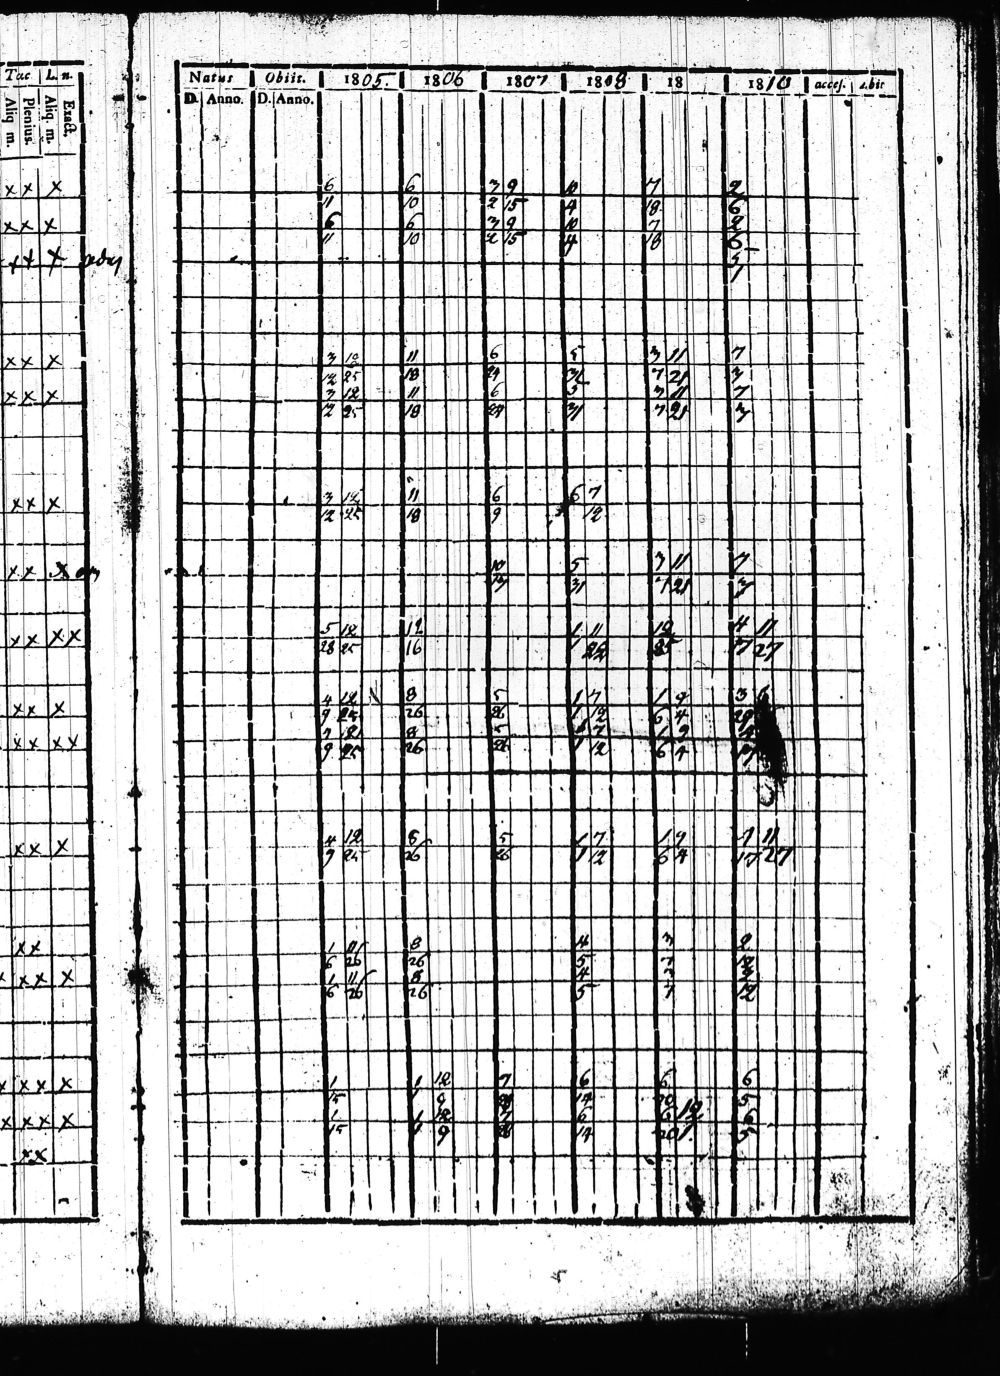 Tac L. n. Natus Obiit. 1805. 1806 1807 1808 18 1810 accef. abit
Aliq m. Plenius. Aliq. m. Exact. D. Anno. D. Anno.
x x x 6 6 3 9 10 7 2
11 10 2 15 4 18 6
x x x 6 6 3 9 10 7 2
11 10 2 15 4 18 6
x x x 5
1
x x x 3 12 11 6 5 3 11 7
12 25 18 24 31 7 21 3
x x x 3 12 11 6 5 3 11 7
12 25 18 24 31 7 21 3
x x x 3 12 11 6 6 7
12 25 18 9 12
x x x 10 5 3 11 7
17 31 7 21 3
x x x x 5 12 12 1 11 12 4 11
28 25 16 1 22 25 7 27
x x x 4 12 8 5 1 7 1 9 3
9 25 26 26 1 12 6 4 29
x x x x 4 12 8 5 1 7 1 9
9 25 26 26 1 12 6 4 17
x x x 4 12 8 5 1 7 1 9 1 11
9 25 26 26 1 12 6 4 17 27
x x 1 11 8 4 3 2
6 26 26 5 7 12
x x x x 1 11 8 4 3 2
6 26 26 5 7 12
x x x x 1 1 12 7 6 6 6
15 1 9 28 14 20 5
x x x x 1 1 12 7 6 6 12 6
15 1 9 28 14 20 1 5
x x